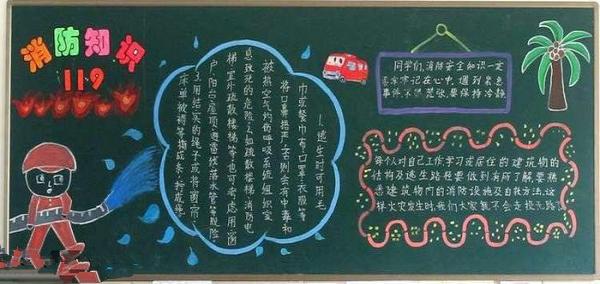 消防知识
119
1.逃生时可用毛
巾或餐巾布,口罩,衣服等
将口鼻捂严,否则会有中毒和
被热空气灼伤呼吸系统组织窒
息致死的危险2.如疏散楼梯,消防电
梯,室外疏散楼梯等也可考虑用窗
户,阳台,屋顶,避雷线,落水管等脱险,
3.用结实的绳子或将窗帘
床单被褥等物成条,拧成绳,
同学们,消防安全知识一定
要牢牢记在心中,遇到紧急
事件,不慌张,要保持冷静
每个人对自己工作,学习或居住的建筑物的
结构及逃生路径要做到有所了解,要熟
悉建筑物内的消防设施及自救方法,这
样火灾发生时,我们大家就不会走投无路!